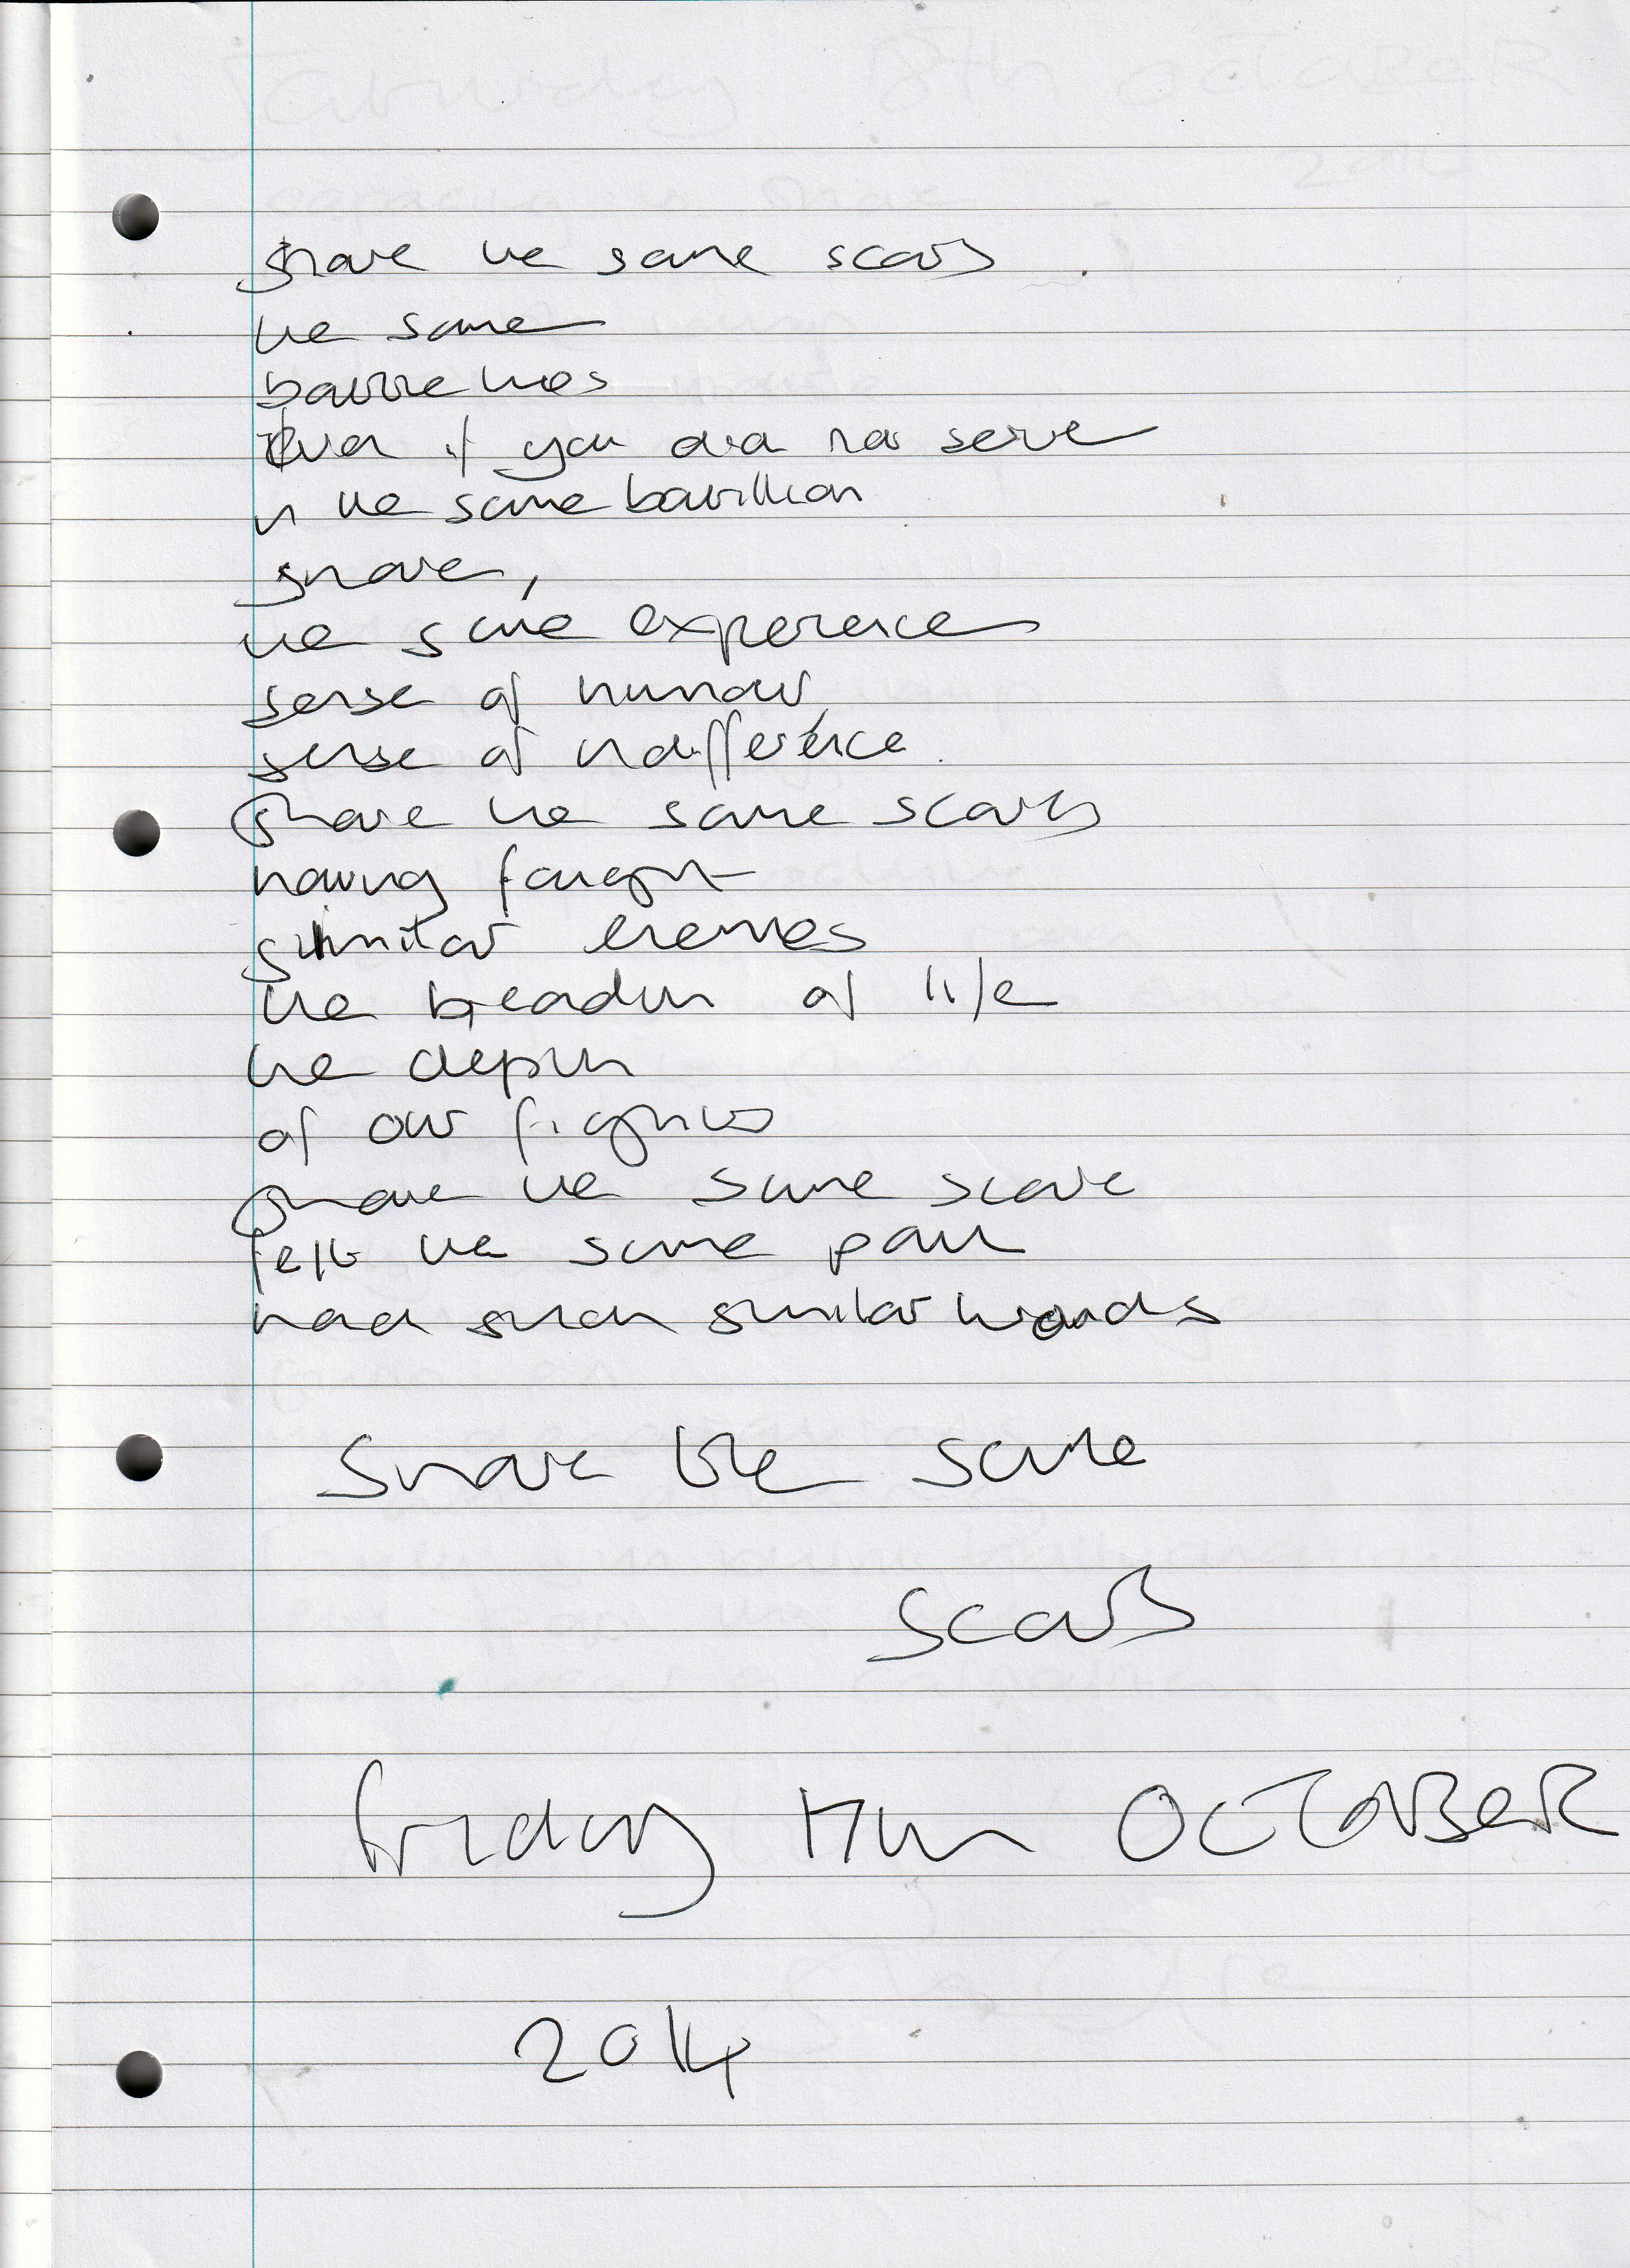 share the same scars
the same
battle lines
Even if you did not serve
in the same battallion
share,
the same experience
sense of humour,
sense of indifference.
share the same scars
having fought
similar enemies
the breadth of life
the depth
of our fights
share the same scars
felt the same pain
had such similar wounds
Share the same
scars
friday 17th OCTOBER
2014